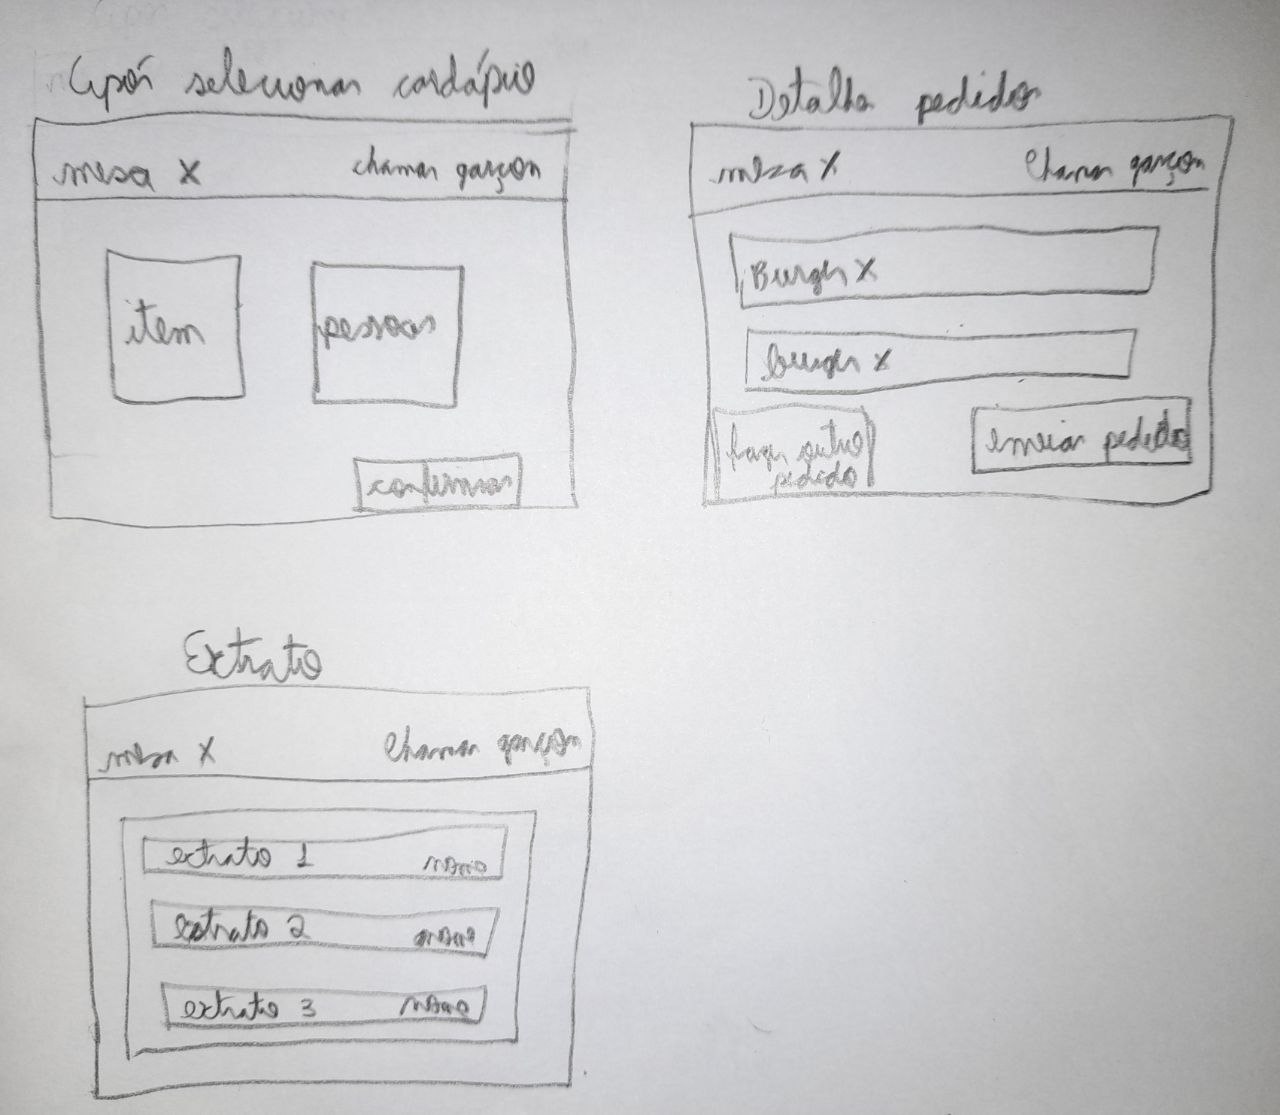 Após selecionar cardápio
mesa X
chamar garçon
item
pessoas
confirmar
Detalha pedidos
mesa X
Chamar garçon
Burger X
burger X
fazer outro
pedido
enviar pedido
Extrato
mesa X
Chamar garçon
extrato 1
extrato 2
extrato 3